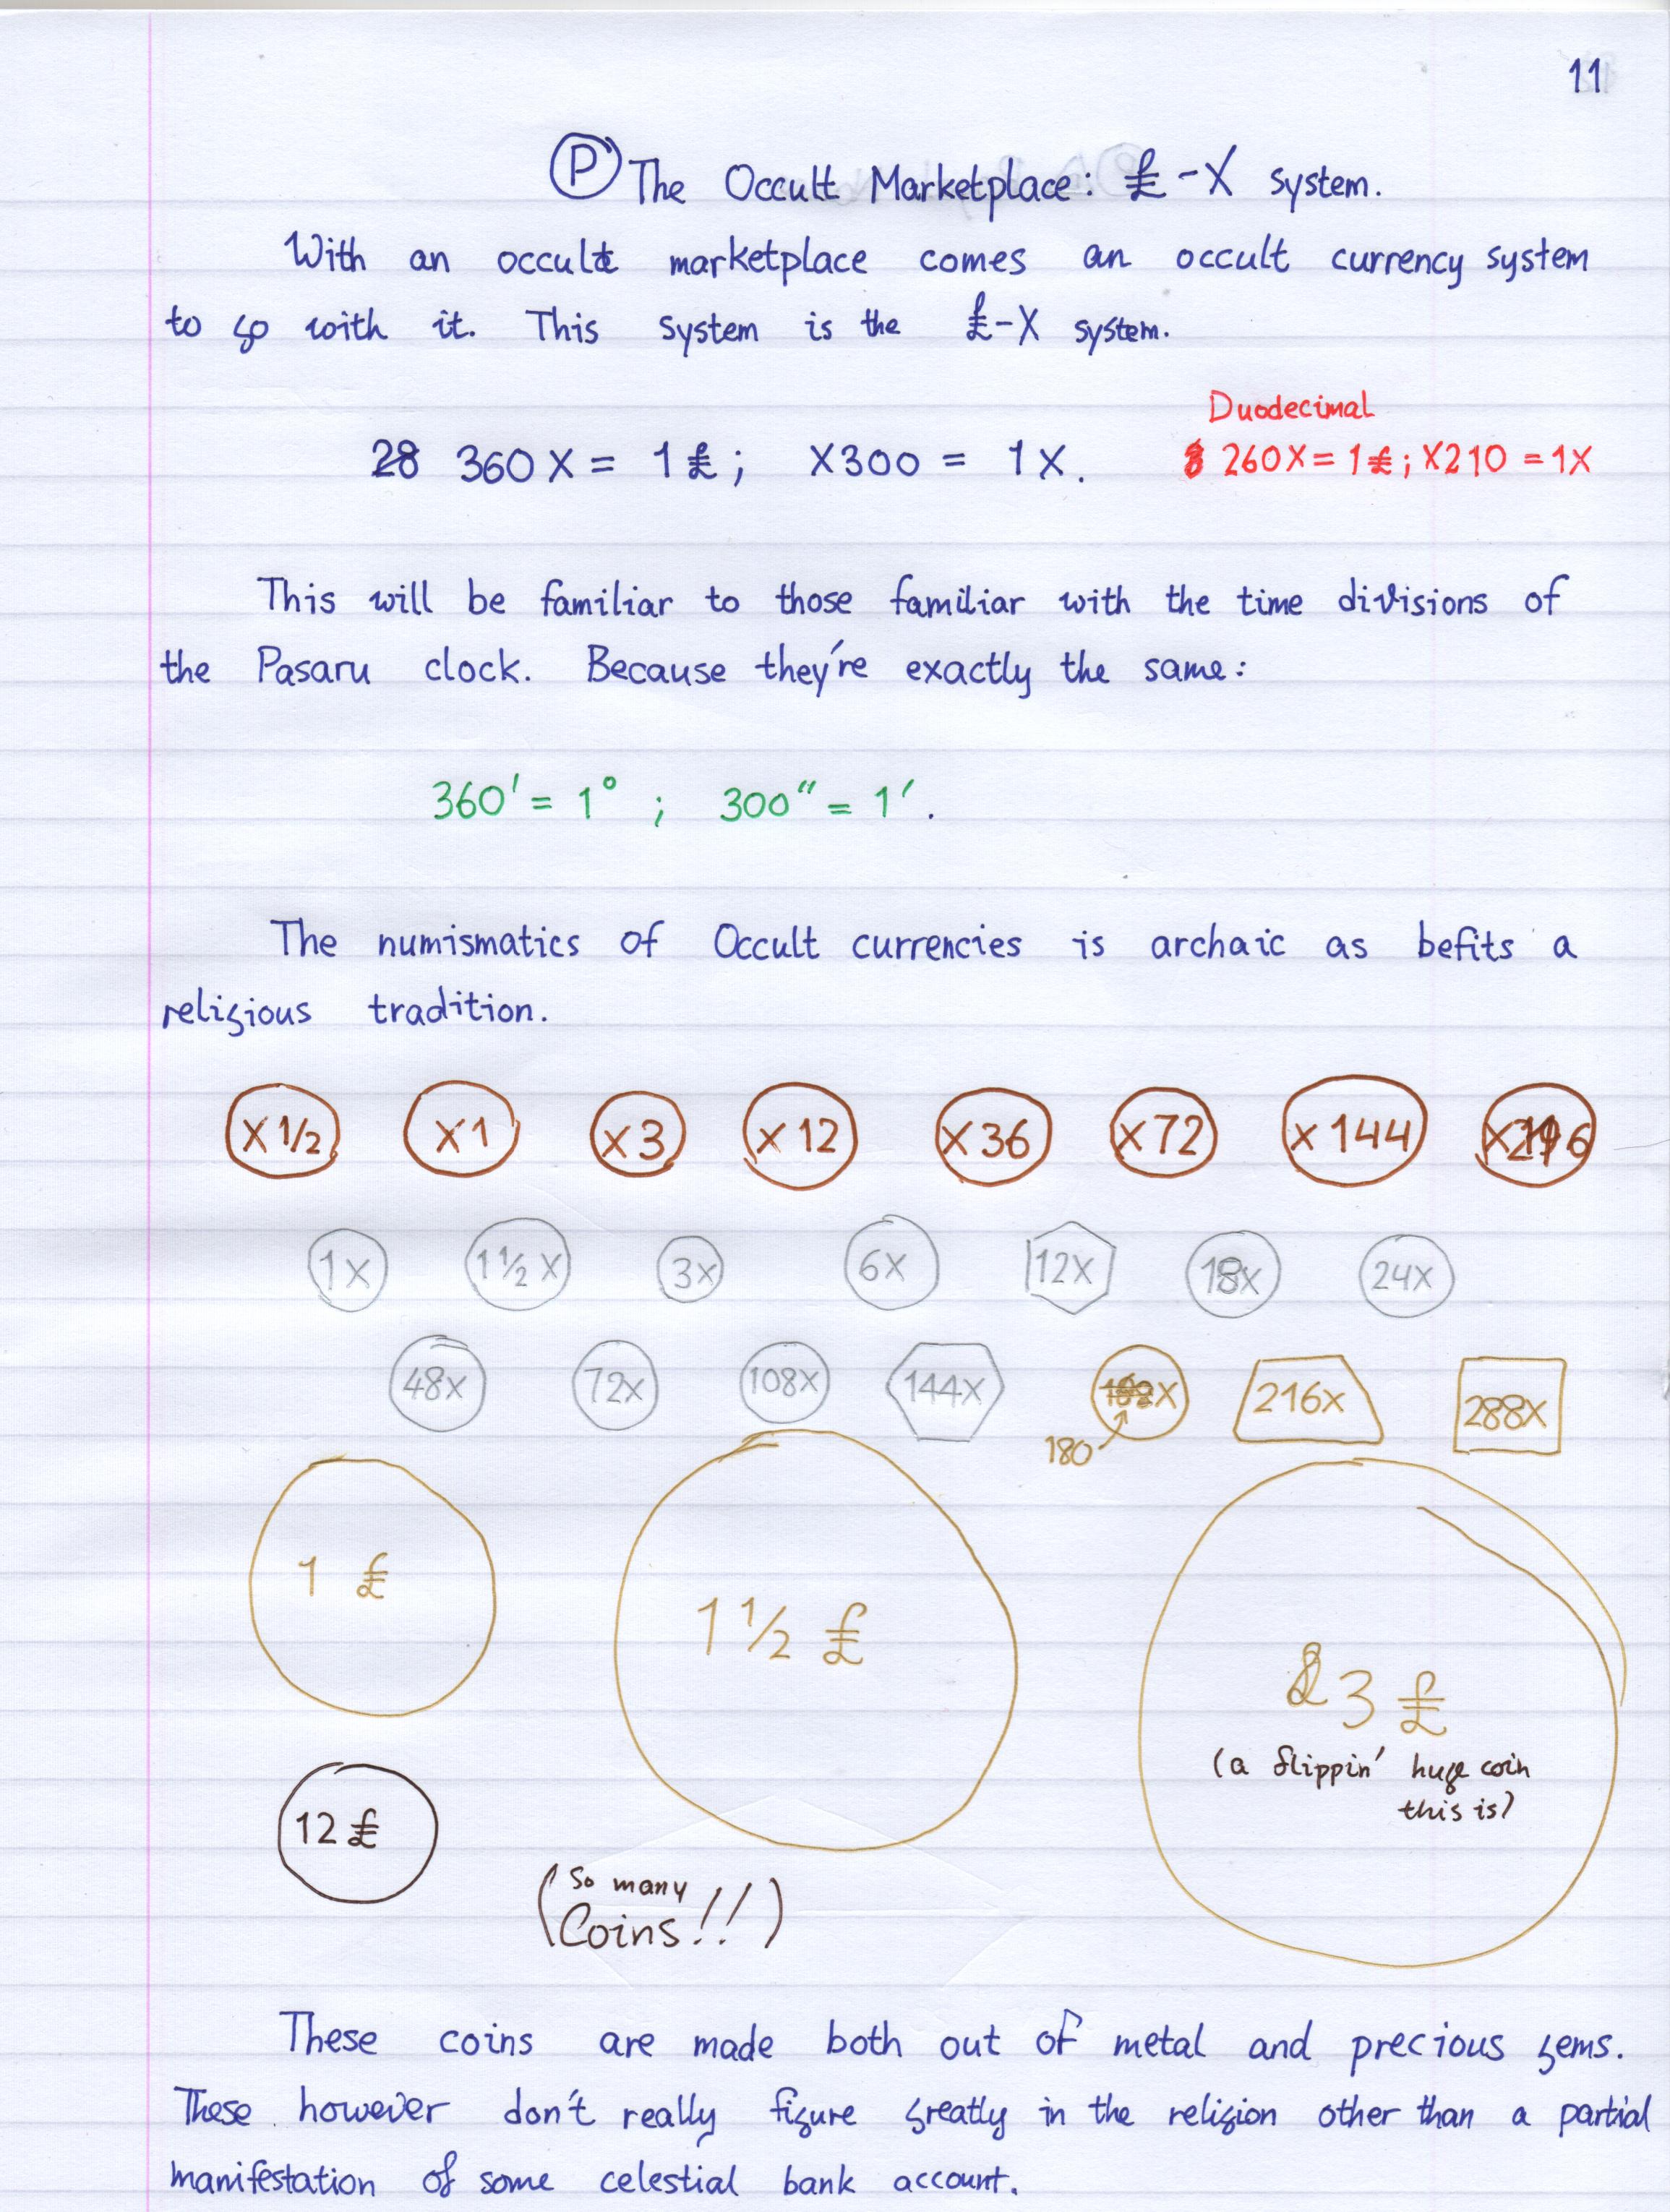 11
Ⓟ The Occult Marketplace: £-X system.
With an occult marketplace comes an occult currency system
to go with it. This system is the £-X system.
Duodecimal
28 360X = 1£; X300 = 1X. 260X = 1£; X210 = 1X
This will be familiar to those familiar with the time divisions of
the Pasaru clock. Because they're exactly the same:
360' = 1°; 300" = 1'.
The numismatics of Occult currencies is archaic as befits a
religious tradition.
X1/2 X1 X3 X12 X36 X72 X144
1X 1 1/2 X 3X 6X 12X 18X 24X
48X 72X 108X 144X X 216X 288X
180
1 £ 1 1/2 £ 3 £
(a flippin' huge coin
this is)
12 £
(So many
Coins!!)
These coins are made both out of metal and precious gems.
These however don't really figure greatly in the religion other than a partial
manifestation of some celestial bank account.